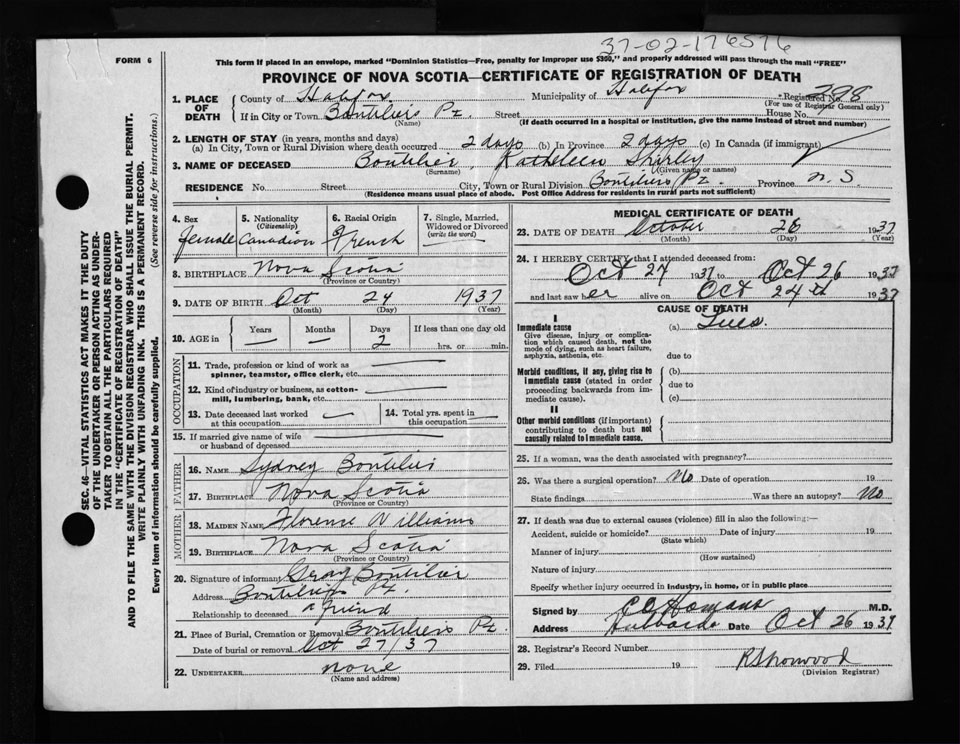 37-02-176576
FORM 6
This form if placed in an envelope, marked "Dominion Statistics—Free, penalty for improper use $300," and properly addressed will pass through the mail "FREE"
PROVINCE OF NOVA SCOTIA—CERTIFICATE OF REGISTRATION OF DEATH
1. PLACE OF DEATH
County of Halifax Municipality of Halifax *Registered No. 398
(For use of Registrar General only)
If in City or Town Boutiliers Pt. Street House No.
(Name) (If death occurred in a hospital or institution, give the name instead of street and number)
2. LENGTH OF STAY (in years, months and days)
(a) In City, Town or Rural Division where death occurred 2 days (b) In Province 2 days (c) In Canada (if immigrant)
3. NAME OF DECEASED Boutilier, Kathleen Shirley
(Surname) (Given name or names)
RESIDENCE No. Street City, Town or Rural Division Boutiliers Pt. Province N.S.
(Residence means usual place of abode. Post Office Address for residents in rural parts not sufficient)
4. Sex
female
5. Nationality
(Citizenship)
Canadian
6. Racial Origin
French
7. Single, Married, Widowed or Divorced
(write the word)
8. BIRTHPLACE Nova Scotia
(Province or Country)
9. DATE OF BIRTH Oct 24 1937
(Month) (Day) (Year)
10. AGE in
Years — Months — Days 2
If less than one day old
hrs. or min.
OCCUPATION
11. Trade, profession or kind of work as spinner, teamster, office clerk, etc.
12. Kind of industry or business, as cotton-mill, lumbering, bank, etc.
13. Date deceased last worked at this occupation
14. Total yrs. spent in this occupation
15. If married give name of wife or husband of deceased
FATHER
16. NAME Sydney Boutilier
17. BIRTHPLACE Nova Scotia
(Province or Country)
MOTHER
18. MAIDEN NAME Florence Williams
19. BIRTHPLACE Nova Scotia
(Province or Country)
20. Signature of informant Boutilier
Address Boutiliers Pt.
Relationship to deceased a friend
21. Place of Burial, Cremation or Removal Boutiliers Pt.
Date of burial or removal Oct 27/37
22. UNDERTAKER none
(Name and address)
MEDICAL CERTIFICATE OF DEATH
23. DATE OF DEATH October 26 1937
(Month) (Day) (Year)
24. I HEREBY CERTIFY that I attended deceased from:
Oct 24 1937 to Oct 26 1937
and last saw her alive on Oct 24th 1937
CAUSE OF DEATH
I
Immediate cause
Give disease, injury or complication which caused death, not the mode of dying, such as heart failure, asphyxia, asthenia, etc.
(a) Lues.
due to
Morbid conditions, if any, giving rise to immediate cause (stated in order proceeding backwards from immediate cause).
(b)
due to
(c)
II
Other morbid conditions (if important) contributing to death but not causally related to immediate cause.
25. If a woman, was the death associated with pregnancy?
26. Was there a surgical operation? No Date of operation 19
State findings Was there an autopsy? No
27. If death was due to external causes (violence) fill in also the following:—
Accident, suicide or homicide? Date of injury 19
(State which)
Manner of injury
(How sustained)
Nature of injury
Specify whether injury occurred in industry, in home, or in public place
Signed by M.D.
Address Hubbards Date Oct 26 1937
28. Registrar's Record Number
29. Filed 19 R Shonwood
(Division Registrar)
SEC. 46—VITAL STATISTICS ACT MAKES IT THE DUTY
OF THE UNDERTAKER OR PERSON ACTING AS UNDER-
TAKER TO OBTAIN ALL THE PARTICULARS REQUIRED
IN THE "CERTIFICATE OF REGISTRATION OF DEATH"
AND TO FILE THE SAME WITH THE DIVISION REGISTRAR WHO SHALL ISSUE THE BURIAL PERMIT.
WRITE PLAINLY WITH UNFADING INK. THIS IS A PERMANENT RECORD.
Every item of information should be carefully supplied. (See reverse side for instructions.)